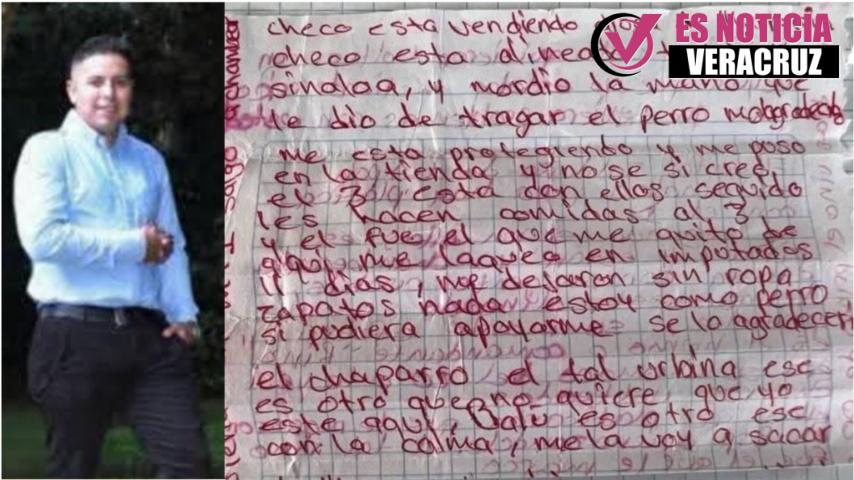 ES NOTICIA
VERACRUZ
checo esta vendiendo
checo esta alineado
sinaloa, y mordio la mano que
le dio de tragar el perro malagradecido
me esta protegiendo y me puso
en la tienda y no se si cree
el 3 esta con ellos seguido
les hacen comidas al 3
y el fue el que me quito de
aqui, me laqueo en imputados
11 dias, me dejaron sin ropa
zapatos nada estoy como perro
si pudiera apoyarme se lo agradeceri
el chaparro el tal urbina ese
es otro que no quiere que yo
este aqui, es otro ese
con la calma, me la voy a sacar